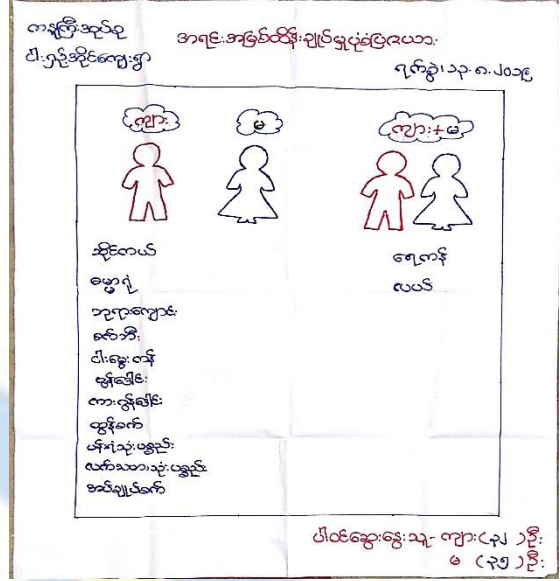 ကညုကြီးအုပ်စု
ငါးရှဉ့်အိုင်ကျေးရွာ
အရင်းအမြစ်ထိန်းချုပ်မှုပုံပြဇယား
ရက်စွဲ၊ ၁၃.၈.၂၀၁၉
ကျား မ ကျား+မ
ဆိုင်ကယ်
ဓမ္မာရုံ
ဘုရားကျောင်း
စက်ဘီး
ငါးမွေးကန်
ဖုန်းခေါင်း
ကား၊ဂွန်ခေါင်း
ထွန်စက်
ပန်းရံသုံးပစ္စည်း
လက်သမားသုံးပစ္စည်း
အပ်ချုပ်စက်
ရေကန်
လယ်
ပါဝင်ဆွေးနွေးသူ- ကျား(၃၂)ဦး
မ (၃၅)ဦး